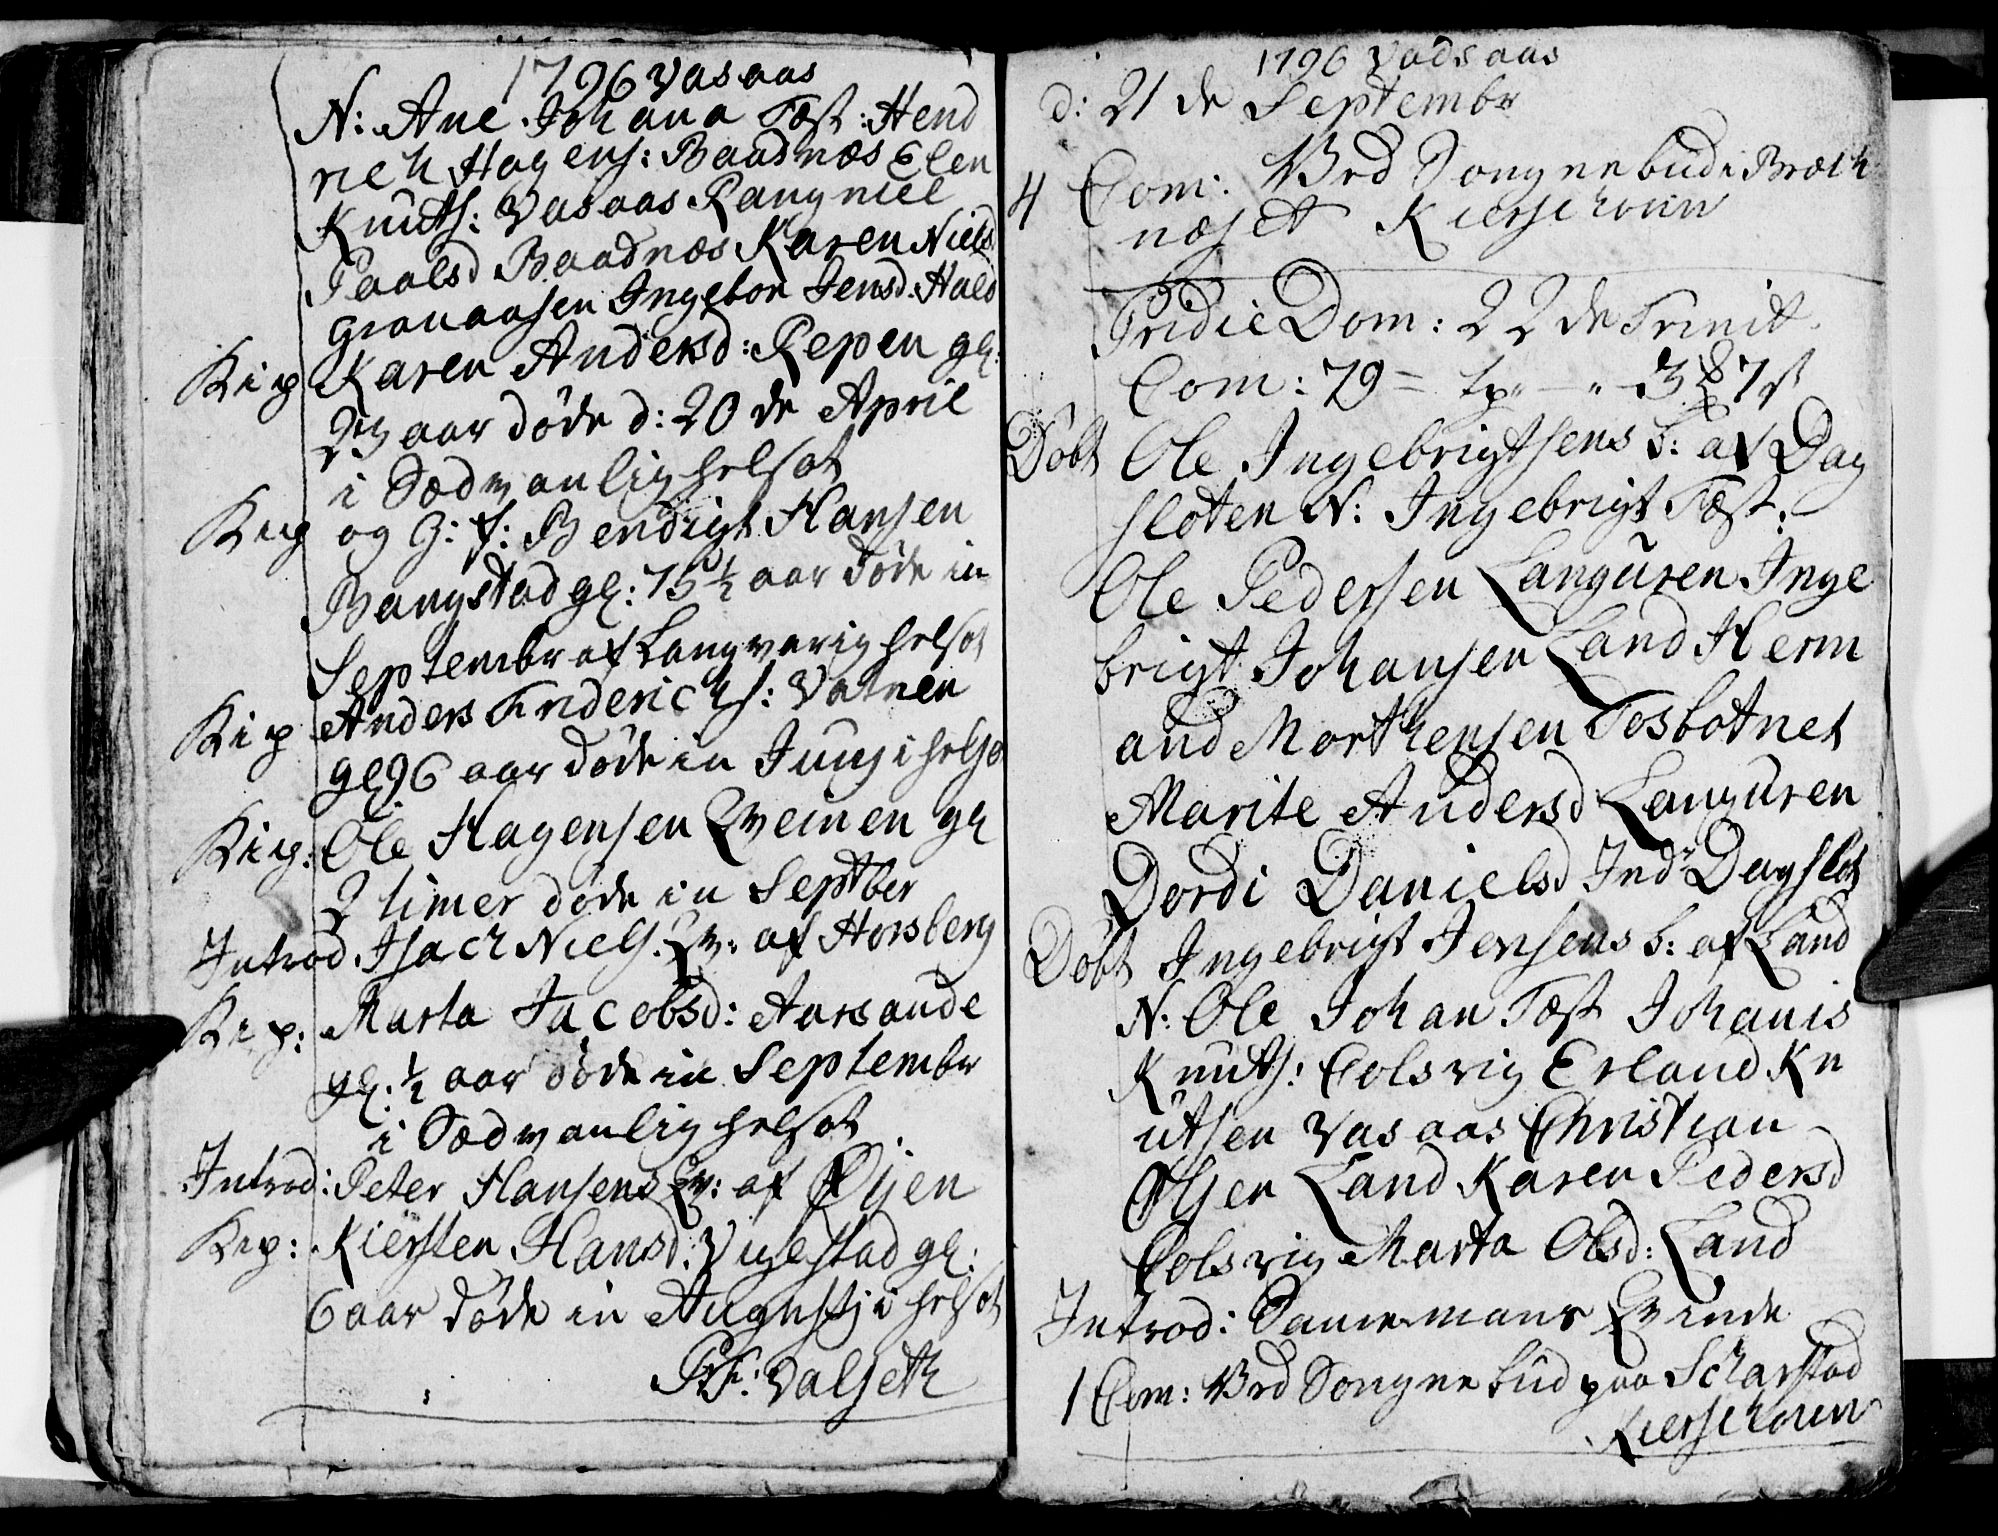 1796 Vasaas
N: Ane Johana Fæst: Hend
rich Hagens: Baadnæs Elen
Knuts: Vasaas Rangniel
Paalsd Baadnæs Karen Niels
Granaasen Ingebor Jensd: Hald
Kip Karen Andersd: Repen gl:
23 aar døde d: 20 de April
i Sædvanlig helsot
Kip og G: f: Bendigt Hansen
Bangstad gl: 75 1/2 aar døde in
Septembr af Langvarig helsot
Kip Anders Friderichs: Vatnen
gl 96 aar døde in Junj i helso
Kip: Ole Hagensen Qveinen gl
3 timer døde in Septber
Introd Isach Niels: Qv: af Horsberg
Kip: Marta Jacobsd: Aarsande
gl: 1/2 aar døde in Septembr
i Sædvanlig helsot
Introd: Peter Hansens Qv: af Øjen
Kip: Kiersten Hansd: Vigestad gl:
6 aar døde in Augustj i helsot
Valseth
1796 Vadsaas
d: 21 de Septembr
4 Com: Ved Songnebud i Broch
næset Kierschouw
Pridie Dom: 22 de Trinit
Com: 79 = tp 3 7
Døbt Ole Ingebrigtsens b: af Dag
sloten N: Ingebrigt Fæst:
Ole Pedersen Languren Inge
brigt Johansen Land Herm
and Morthensen Tosbotnet
Marite Andersd Languren
Dordi Danielsd Indr Dagslot
Døbt Ingebrigt Jensens b: af Land
N: Ole Johan Fæst Johanis
Knuts: Colsvig Erland Kn
utsen Vasaas Christian
Olsen Land Karen Pedersd
Colsvig Marta Olsd: Land
Introd: Samemans Qvinde
1 Com: Ved Songnebud paa Scharstad
Kierschouw